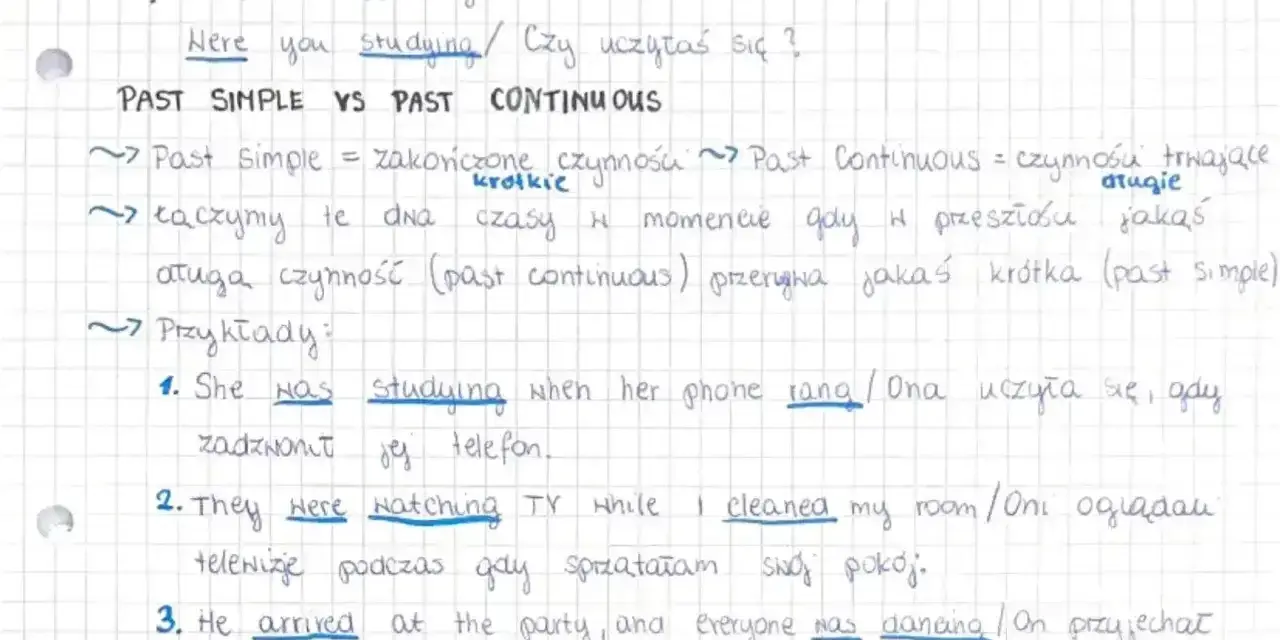 Were you studying / Czy uczyłaś się?
PAST SIMPLE VS PAST CONTINUOUS
~> Past Simple = zakończone czynności ~> Past Continuous = czynności trwające
krótkie długie
~> Łączymy te dwa czasy w momencie gdy w przeszłości jakąś
długą czynność (past continuous) przerywa jakaś krótka (past simple)
~> Przykłady:
1. She was studying when her phone rang / Ona uczyła się, gdy
zadzwonił jej telefon.
2. They were watching TV while I cleaned my room / Oni oglądali
telewizje podczas gdy sprzatałam swój pokój.
3. He arrived at the party, and everyone was dancing / On przyjechał